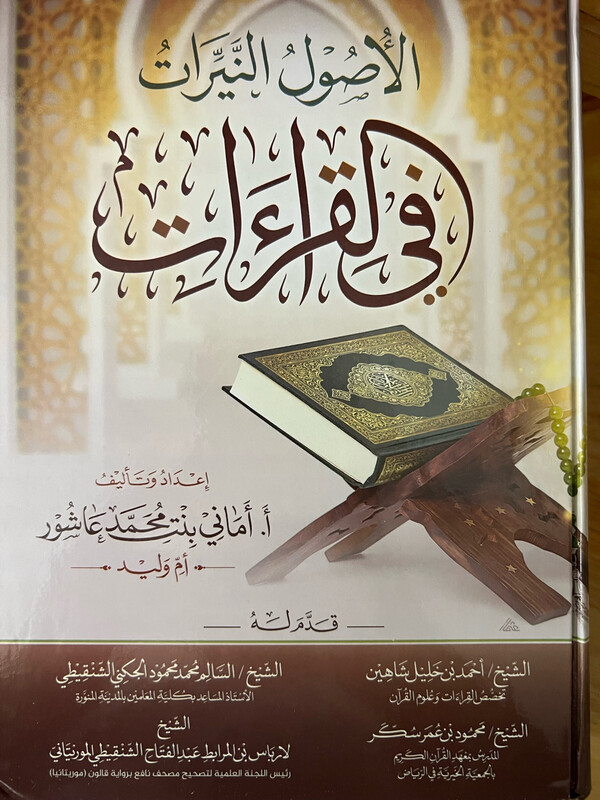 الأُصُولُ النَّيِّرَاتُ
فِي القِرَاءَاتِ
إِعْدَادُ وَتَأْلِيفُ
أ. أَمَانِي بِنْتِ مُحَمَّد عَاشُور
أُمّ وَلِيد
قَدَّمَ لَهُ
الشَّيْخ / أَحْمَد بْن خَلِيل شَاهِين
تخصّص القراءات وعلوم القرآن
الشَّيْخ / مَحْمُود بْن عُمَر سُكَّر
المدرس بمعهد القرآن الكريم
بالجمعية الخيرية في الرياض
الشَّيْخ / السَّالِم مُحَمَّد مَحْمُود الجكني الشَّنْقِيطِي
الأستاذ المساعد بكلية المعلمين بالمدينة المنورة
الشَّيْخ
لارباس بن المرابط عبد الفتاح الشنقيطي الموريتاني
رئيس اللجنة العلمية لتصحيح مصحف نافع برواية قالون (موريتانيا)